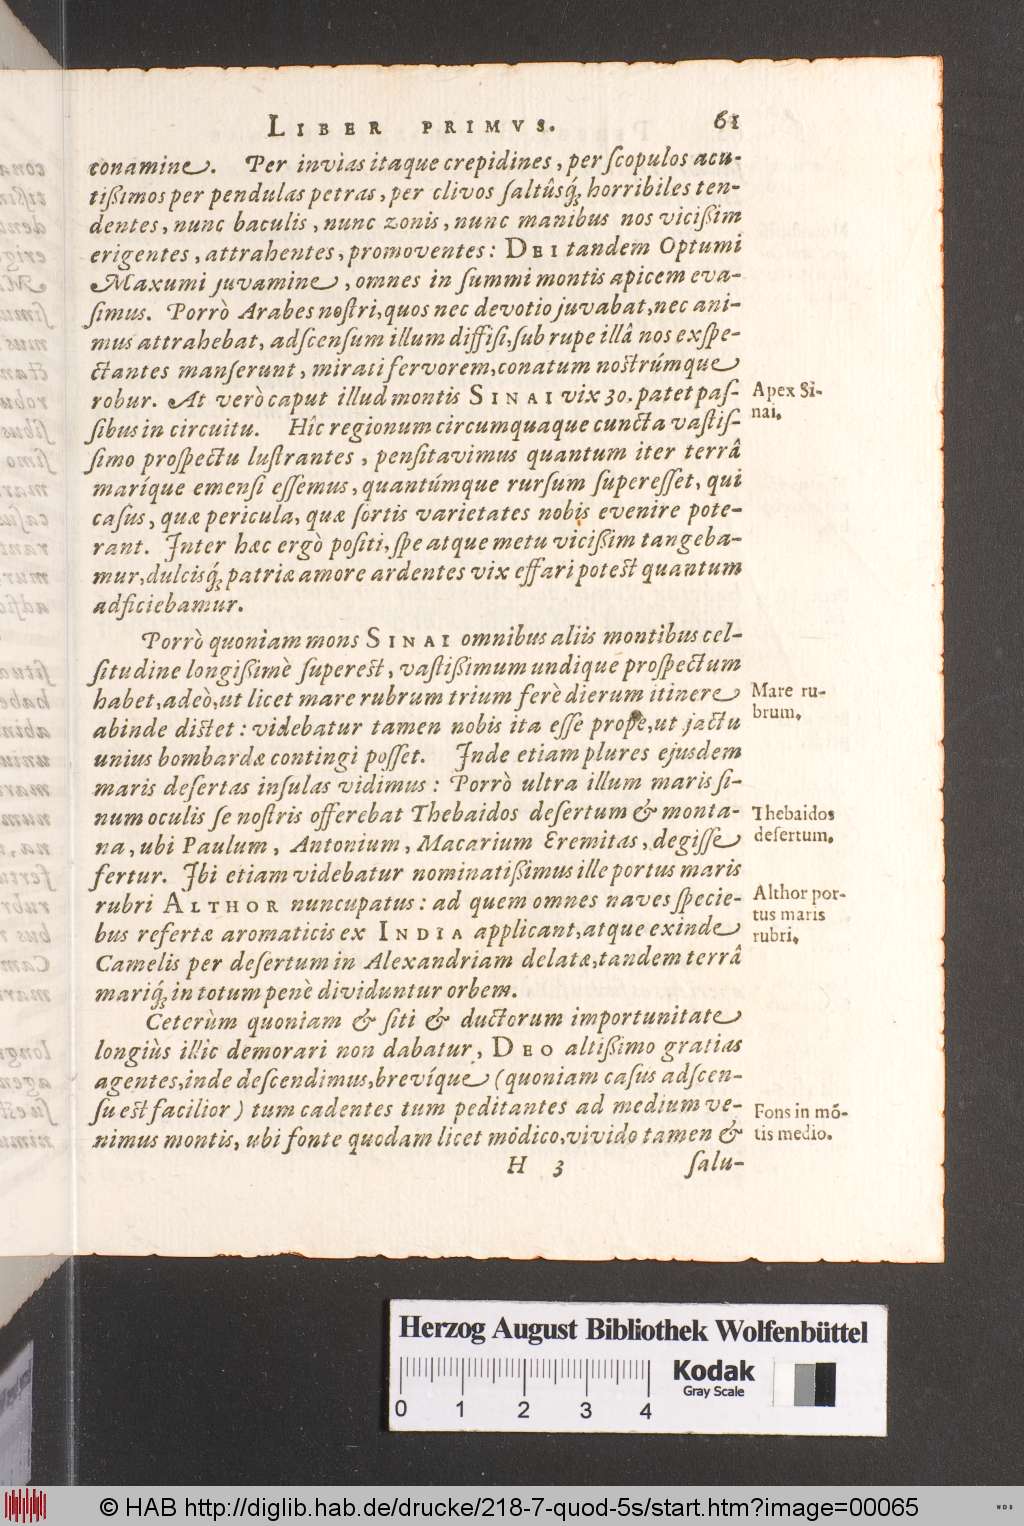 LIBER PRIMVS. 61
conamine. Per invias itaque crepidines, per ſcopulos acu-
tißimos per pendulas petras, per clivos ſaltûsq́; horribiles ten-
dentes, nunc baculis, nunc zonis, nunc manibus nos vicißim
erigentes, attrahentes, promoventes: DEI tandem Optumi
Maxumi juvamine, omnes in ſummi montis apicem eva-
ſimus. Porrò Arabes noſtri, quos nec devotio juvabat, nec ani-
mus attrahebat, adſcenſum illum diffiſi, ſub rupe illâ nos exſpe-
ctantes manſerunt, mirati fervorem, conatum noſtrúmque
robur. At verò caput illud montis SINAI vix 30. patet paſ-
ſibus in circuitu. Hîc regionum circumquaque cuncta vaſtiſ-
ſimo proſpectu luſtrantes, penſitavimus quantum iter terrâ
maríque emenſi eſſemus, quantúmque rurſum ſupereſſet, qui
caſus, quæ pericula, quæ ſortis varietates nobis evenire pote-
rant. Inter hæc ergò poſiti, ſpe atque metu vicißim tangeba-
mur, dulcisq́; patriæ amore ardentes vix effari poteſt quantum
adficiebamur.
Apex Si-
nai.
Porrò quoniam mons SINAI omnibus aliis montibus cel-
ſitudine longißimè ſupereſt, vaſtißimum undique proſpectum
habet, adeò, ut licet mare rubrum trium ferè dierum itinere
abinde diſtet: videbatur tamen nobis ita eſſe prope, ut jactu
unius bombardæ contingi poſſet. Inde etiam plures ejusdem
maris deſertas inſulas vidimus: Porrò ultra illum maris ſi-
num oculis ſe noſtris offerebat Thebaidos deſertum & monta-
na, ubi Paulum, Antonium, Macarium Eremitas, degiſſe
fertur. Ibi etiam videbatur nominatißimus ille portus maris
rubri ALTHOR nuncupatus: ad quem omnes naves ſpecie-
bus refertæ aromaticis ex INDIA applicant, atque exinde
Camelis per deſertum in Alexandriam delatæ, tandem terrâ
mariq́; in totum penè dividuntur orbem.
Mare ru-
brum.
Thebaidos
deſertum.
Althor por-
tus maris
rubri.
Ceterùm quoniam & ſiti & ductorum importunitate
longiùs illic demorari non dabatur, DEO altißimo gratias
agentes, inde deſcendimus, brevíque (quoniam caſus adſcen-
ſu eſt facilior) tum cadentes tum peditantes ad medium ve-
nimus montis, ubi fonte quodam licet módico, vivido tamen &
Fons in mõ-
tis medio.
H 3 ſalu-
Herzog August Bibliothek Wolfenbüttel
Kodak
Gray Scale
0 1 2 3 4
© HAB http://diglib.hab.de/drucke/218-7-quod-5s/start.htm?image=00065